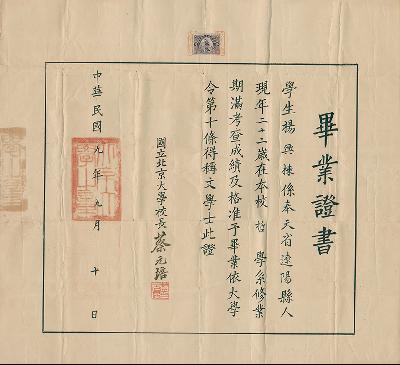 畢業證書
學生楊興棟係奉天省遼陽縣人
現年二十二歲在本校哲學系修業
期滿考登成績及格准予畢業依大學
令第十條得稱文學士此證
國立北京大學校長蔡元培
中華民國九年九月十日